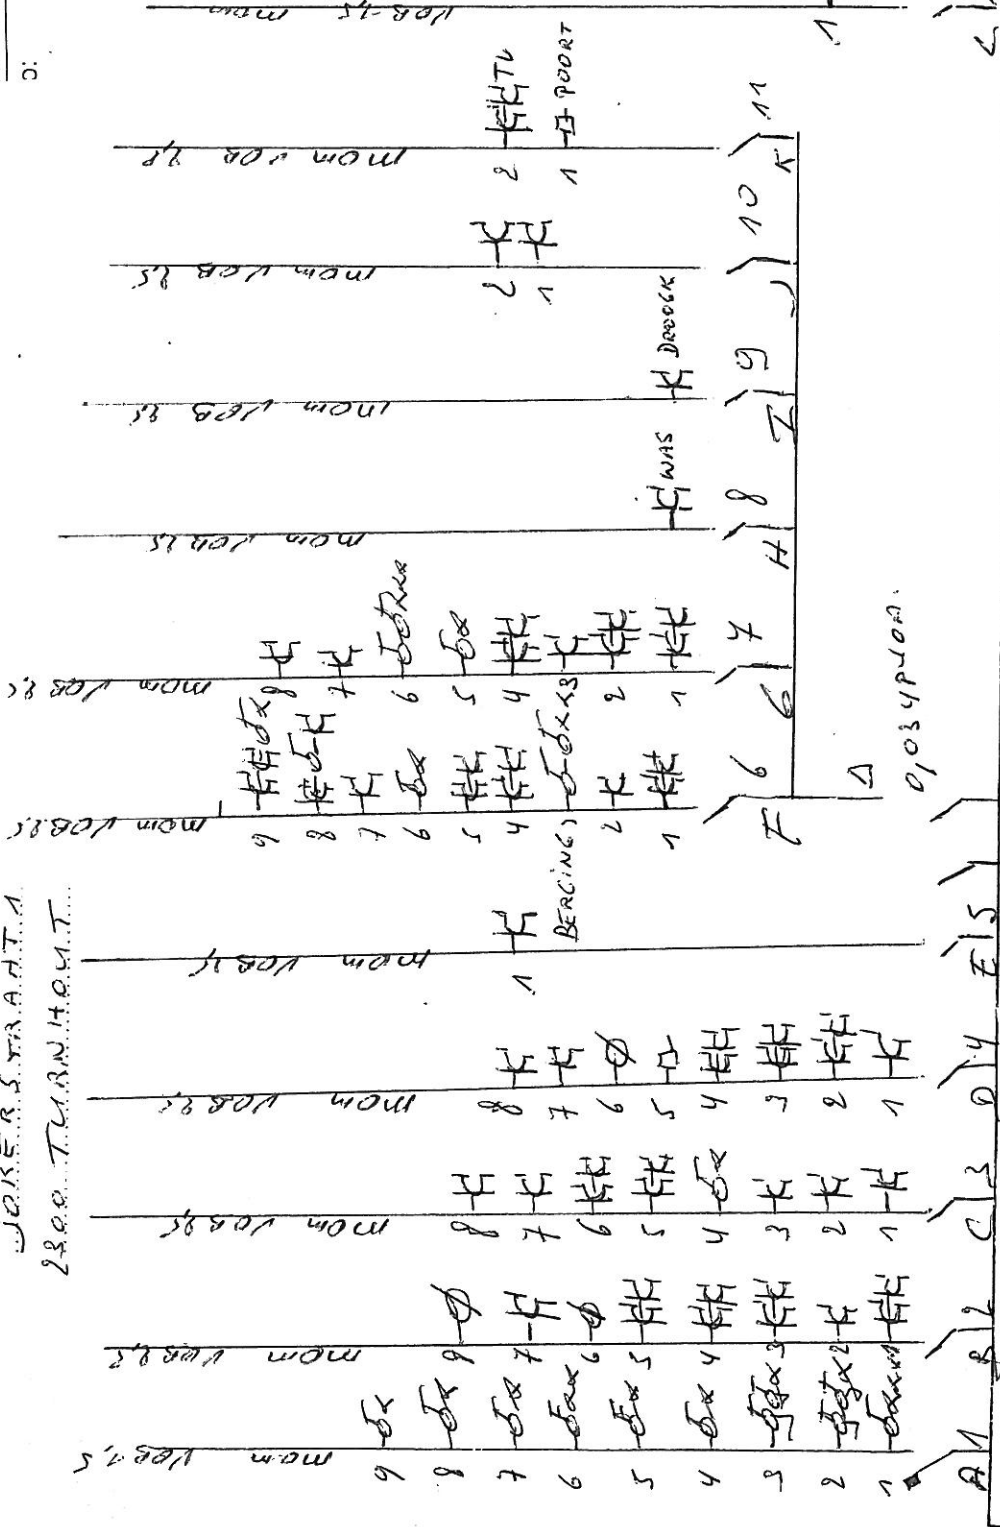 JOKERSTRAAT 1
2300 TURNHOUT
mom VOB 1,5
9
8
7
6
5
4
3
2
1
A 1
mom VOB 2,5
9
7
6
5
4
3
2
1
B 2
mom VOB 2,5
8
7
6
5
4
3
2
1
C 3
mom VOB 2,5
8
7
6
5
4
3
2
1
D 4
mom VOB 2,5
1
BERGING
E 5
mom VOB 2,5
9
8
7
6
5
4
3
2
1
F 6
Δ
mom VOB 2,5
8
7
6
5
4
3
2
1
G 7
mom VOB 2,5
WAS
H 8
mom VOB 2,5
DROOGK
I 9
mom VOB 2,5
2
1
J 10
mom VOB 2,5
2 TV
1 POORT
K 11
mom VOB 1,5
1
L